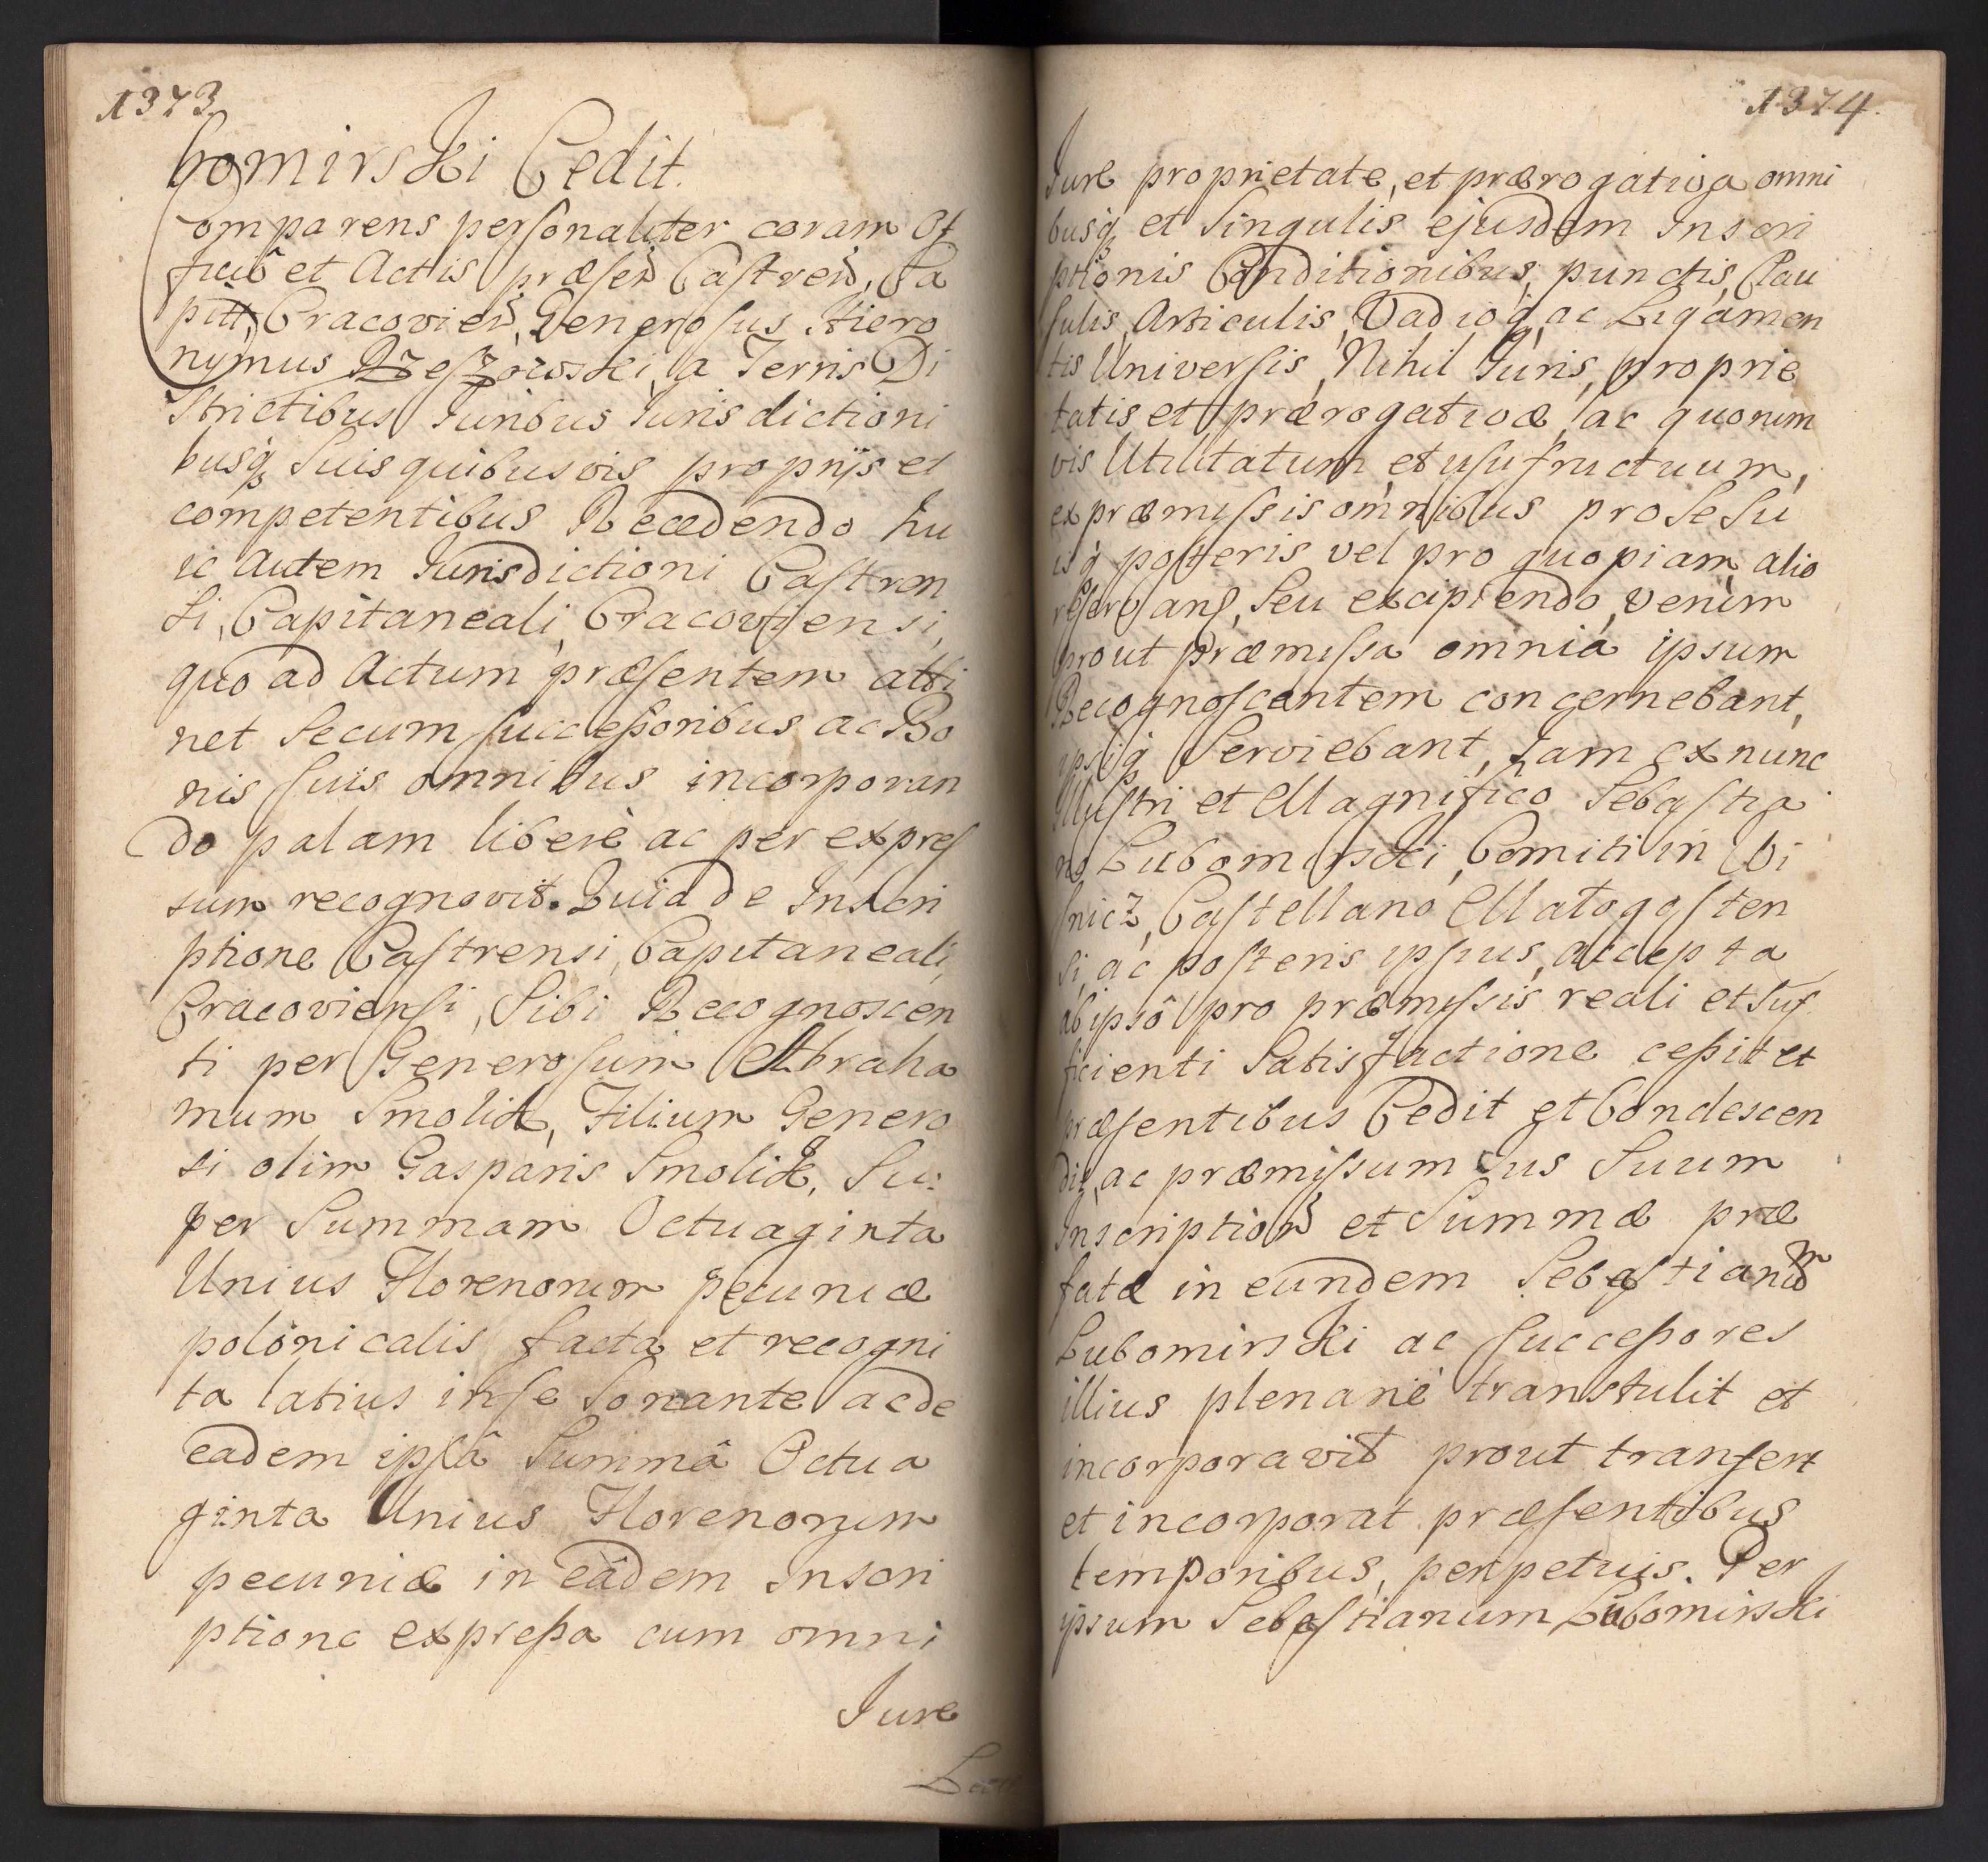 1373.
bomirski Cedit.
Comparens personaliter coram Of
ficiô et Actis præsen Castren, Ca
pitt, Cracovien, Generosus Hiero
nymus Rzeszowski, a Terris Di
strictibus Juribus Jurisdictioni
busq Suis quibusvis proprijs et
competentibus Recedendo hu
ic autem Jurisdictioni Castren
si, Capitaneali, Cracoviensi,
quo ad Actum præsentem atti
net Secum successoribus ac Bo
nis suis omnibus incorporan
do palam liberè ac per expres
sum recognovit. Quia de Inscri
ptione Castrensi, Capitaneali,
Cracoviensi, Sibi Recognoscen
ti per Generosum Abraha
mum Smolik, Filium Genero
si olim Gasparis Smolik, Su:
per Summam Octuaginta
Unius Florenorum pecuniæ
polonicalis facta et recogni
ta latius in se Sonante ac de
eadem ipsâ Summâ Octua
ginta Unius Florenorum
pecuniæ in eâdem Inscri
ptione expressa cum omni
Jure
1374.
Jure proprietate, et prærogativa omni
busq et Singulis ejusdem Inscri
ptionis Conditionibus, punctis, Clau
sulis, Articulis, Vadioq, ac Ligamen
tis Universis, Nihil Juris, proprie
tatis et prærogativæ, ac quorum
vis Utilitatum, et usufructuum,
ex præmissis omnibus pro Se Su
isq posteris vel pro quopiam alio
reservans, Seu excipiendo, verum
prout præmissa omnia ipsum
Recognoscentem concernebant,
ipsiq Serviebant, Jam ex nunc
Illustri et Magnifico Sebastia
no Lubomirski, Comiti in Wi
snicz, Castellano Małogosten
si, ac posteris ipsius, accepta
ab ipsô pro præmissis reali et Suf
ficienti Satisfactione cessit et
præsentibus Cedit et Condescen
dit, ac præmissum Jus Suum
Inscription et Summæ præ
fatæ in eundem Sebastianum
Lubomirski ac Successores
illius plenariè transtulit et
incorporavit prout transfert
et incorporat præsentibus
temporibus, perpetuis. Per
ipsum Sebastianum Lubomirski